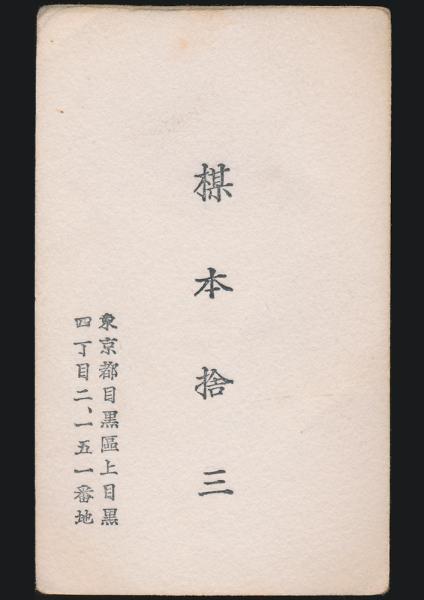 楳本捨三
東京都目黑區上目黑
四丁目二、一五一番地